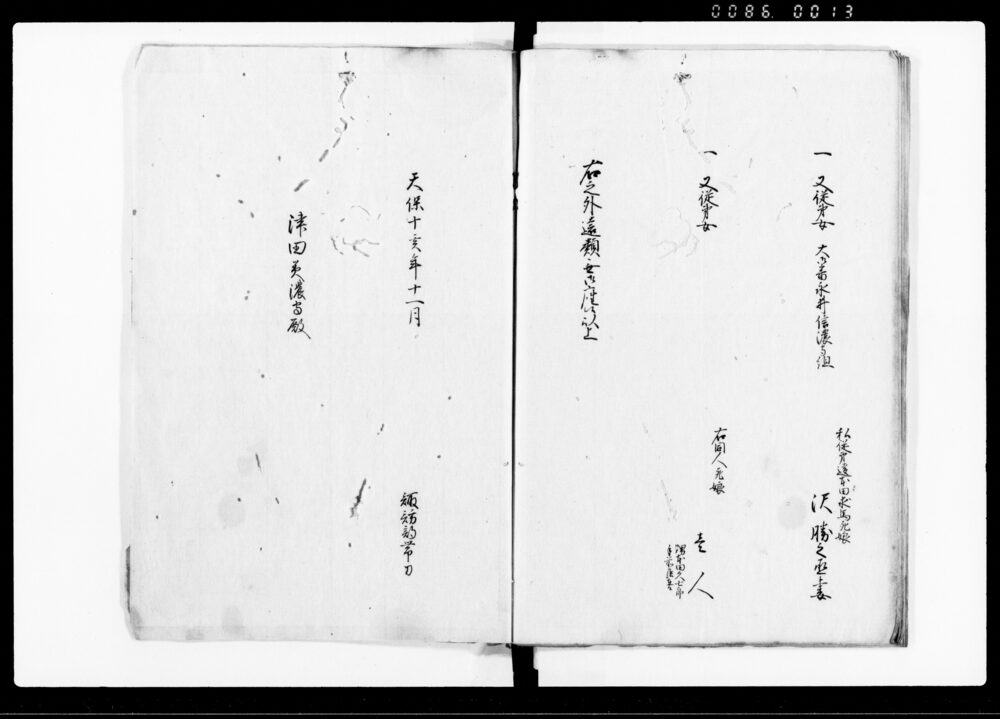 0086 0013
一 又従弟女 大御番永井信濃守組
私従弟違本田求馬死娘
沢勝之丞妻
一 又従弟女
右同人死娘
壱人
右之外遠類無御座候以上
天保十亥年十一月
諏訪部帯刀
津田美濃守殿